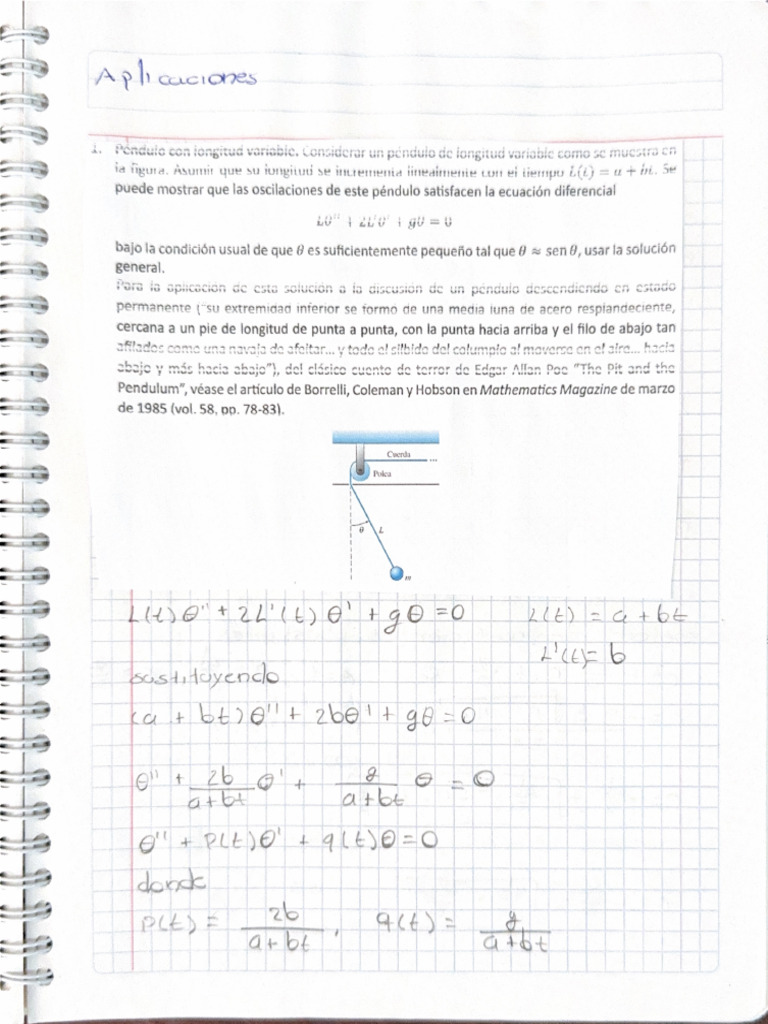 Aplicaciones
1. Péndulo con longitud variable. Considerar un péndulo de longitud variable como se muestra en
la figura. Asumir que su longitud se incrementa linealmente con el tiempo L(t) = a + bt. Se
puede mostrar que las oscilaciones de este péndulo satisfacen la ecuación diferencial
Lθ'' + 2L'θ' + gθ = 0
bajo la condición usual de que θ es suficientemente pequeño tal que θ ≈ sen θ, usar la solución
general.
Para la aplicación de esta solución a la discusión de un péndulo descendiendo en estado
permanente ("su extremidad inferior se formo de una media luna de acero resplandeciente,
cercana a un pie de longitud de punta a punta, con la punta hacia arriba y el filo de abajo tan
afilados como una navaja de afeitar... y todo el silbido del columpio al moverse en el aire... hacia
abajo y más hacia abajo"), del clásico cuento de terror de Edgar Allan Poe "The Pit and the
Pendulum", véase el artículo de Borrelli, Coleman y Hobson en Mathematics Magazine de marzo
de 1985 (vol. 58, pp. 78-83).
Cuerda
Polea
θ L
m
L(t)θ'' + 2L'(t)θ' + gθ = 0 L(t) = a + bt
L'(t) = b
sustituyendo
(a + bt)θ'' + 2bθ' + gθ = 0
θ'' + 2b/(a+bt) θ' + g/(a+bt) θ = 0
θ'' + P(t)θ' + q(t)θ = 0
donde
P(t) = 2b/(a+bt), q(t) = g/(a+bt)